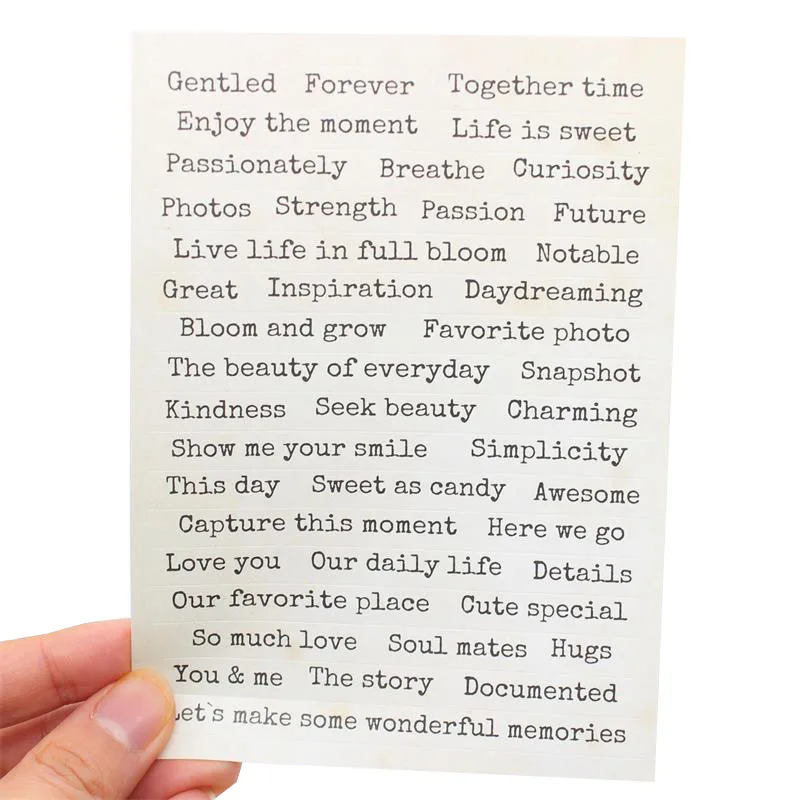 Gentled Forever Together time
Enjoy the moment Life is sweet
Passionately Breathe Curiosity
Photos Strength Passion Future
Live life in full bloom Notable
Great Inspiration Daydreaming
Bloom and grow Favorite photo
The beauty of everyday Snapshot
Kindness Seek beauty Charming
Show me your smile Simplicity
This day Sweet as candy Awesome
Capture this moment Here we go
Love you Our daily life Details
Our favorite place Cute special
So much love Soul mates Hugs
You & me The story Documented
Let`s make some wonderful memories